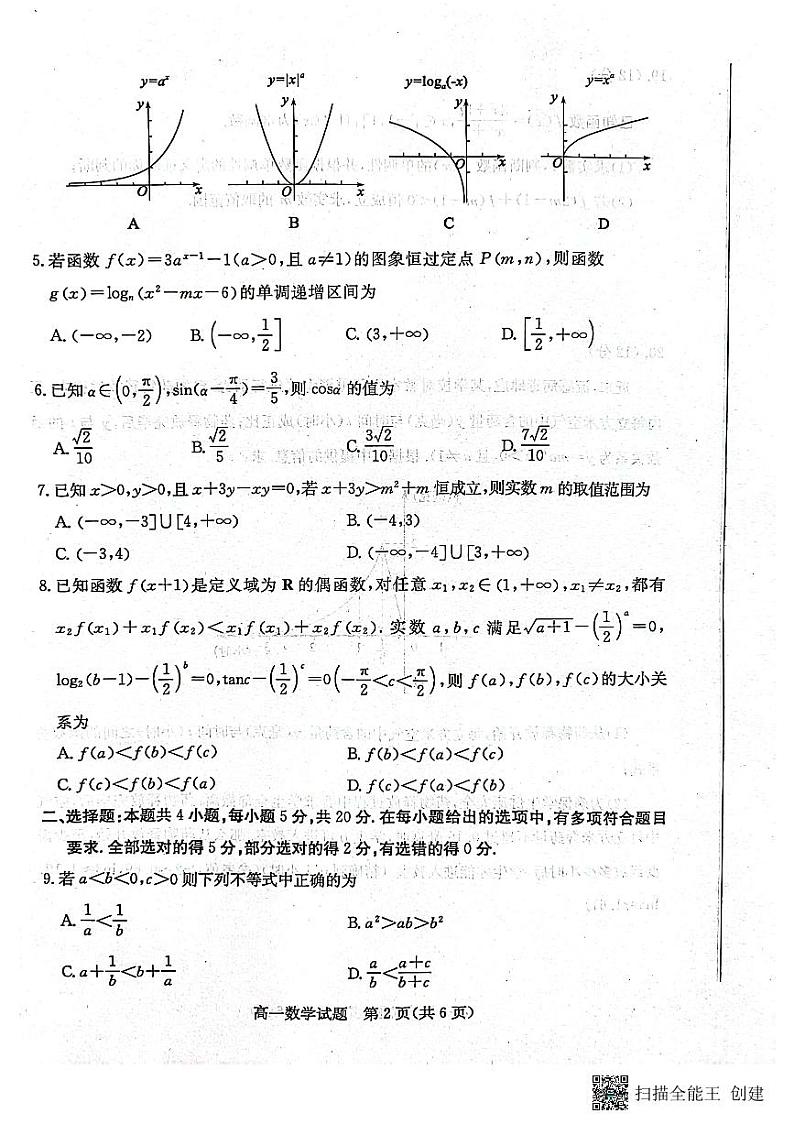 y=aˣ y=|x|ᵃ y=logₐ(-x) y=xᵃ
y y y y
O x O x O x O x
A B C D
5.若函数 f(x)=3aˣ⁻¹-1(a>0,且 a≠1)的图象恒过定点 P(m,n),则函数
g(x)=logₙ(x²-mx-6)的单调递增区间为
A.(-∞,-2) B.(-∞,1/2] C.(3,+∞) D.[1/2,+∞)
6.已知α∈(0,π/2),sin(α-π/4)=3/5,则 cosα 的值为
A.√2/10 B.√2/5 C.3√2/10 D.7√2/10
7.已知 x>0,y>0,且 x+3y-xy=0,若 x+3y>m²+m 恒成立,则实数 m 的取值范围为
A.(-∞,-3]∪[4,+∞) B.(-4,3)
C.(-3,4) D.(-∞,-4]∪[3,+∞)
8.已知函数 f(x+1)是定义域为 R 的偶函数,对任意 x₁,x₂∈(1,+∞),x₁≠x₂,都有
x₂f(x₁)+x₁f(x₂)<x₁f(x₁)+x₂f(x₂).实数 a,b,c 满足√(a+1)-(1/2)ᵃ=0,
log₂(b-1)-(1/2)ᵇ=0,tanc-(1/2)ᶜ=0(-π/2<c<π/2),则 f(a),f(b),f(c)的大小关
系为
A.f(a)<f(b)<f(c) B.f(b)<f(a)<f(c)
C.f(c)<f(b)<f(a) D.f(c)<f(a)<f(b)
二、选择题:本题共 4 小题,每小题 5 分,共 20 分.在每小题给出的选项中,有多项符合题目
要求.全部选对的得 5 分,部分选对的得 2 分,有选错的得 0 分.
9.若 a<b<0,c>0 则下列不等式中正确的为
A.1/a<1/b B.a²>ab>b²
C.a+1/b<b+1/a D.a/b<(a+c)/(b+c)
高一数学试题 第 2 页(共 6 页)
扫描全能王 创建